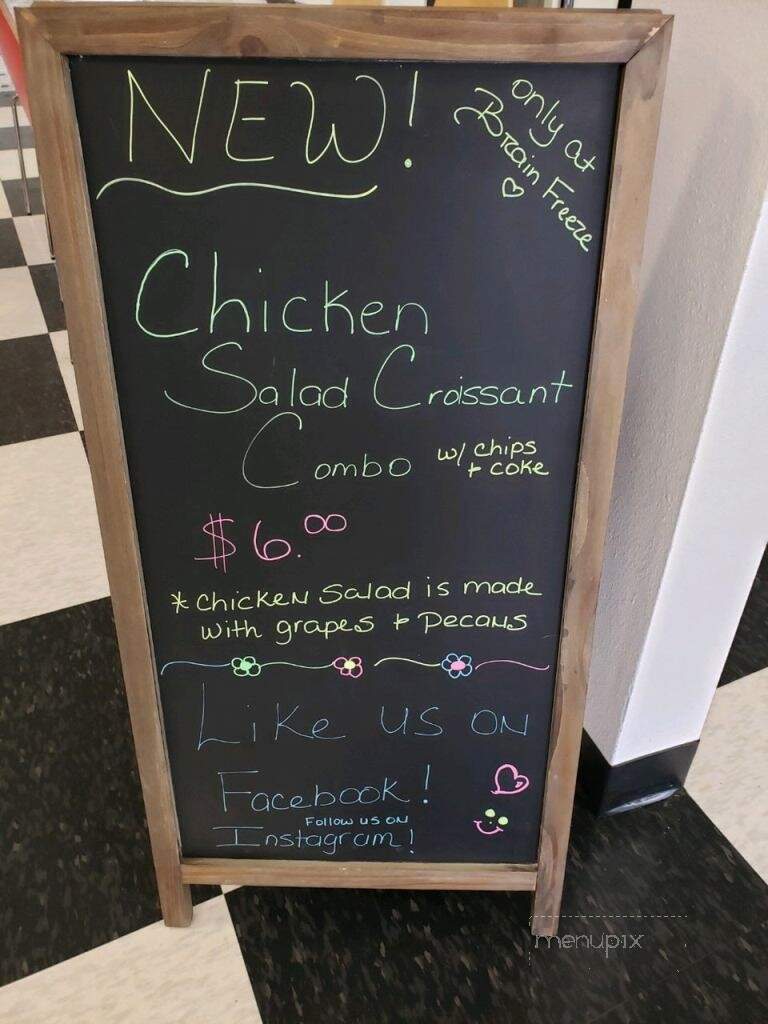 NEW!
only at
Brain Freeze
Chicken
Salad Croissant
Combo w/ chips
+ coke
$6.00
*Chicken Salad is made
with grapes + Pecans
Like us on
Facebook!
Follow us on
Instagram!
menupix